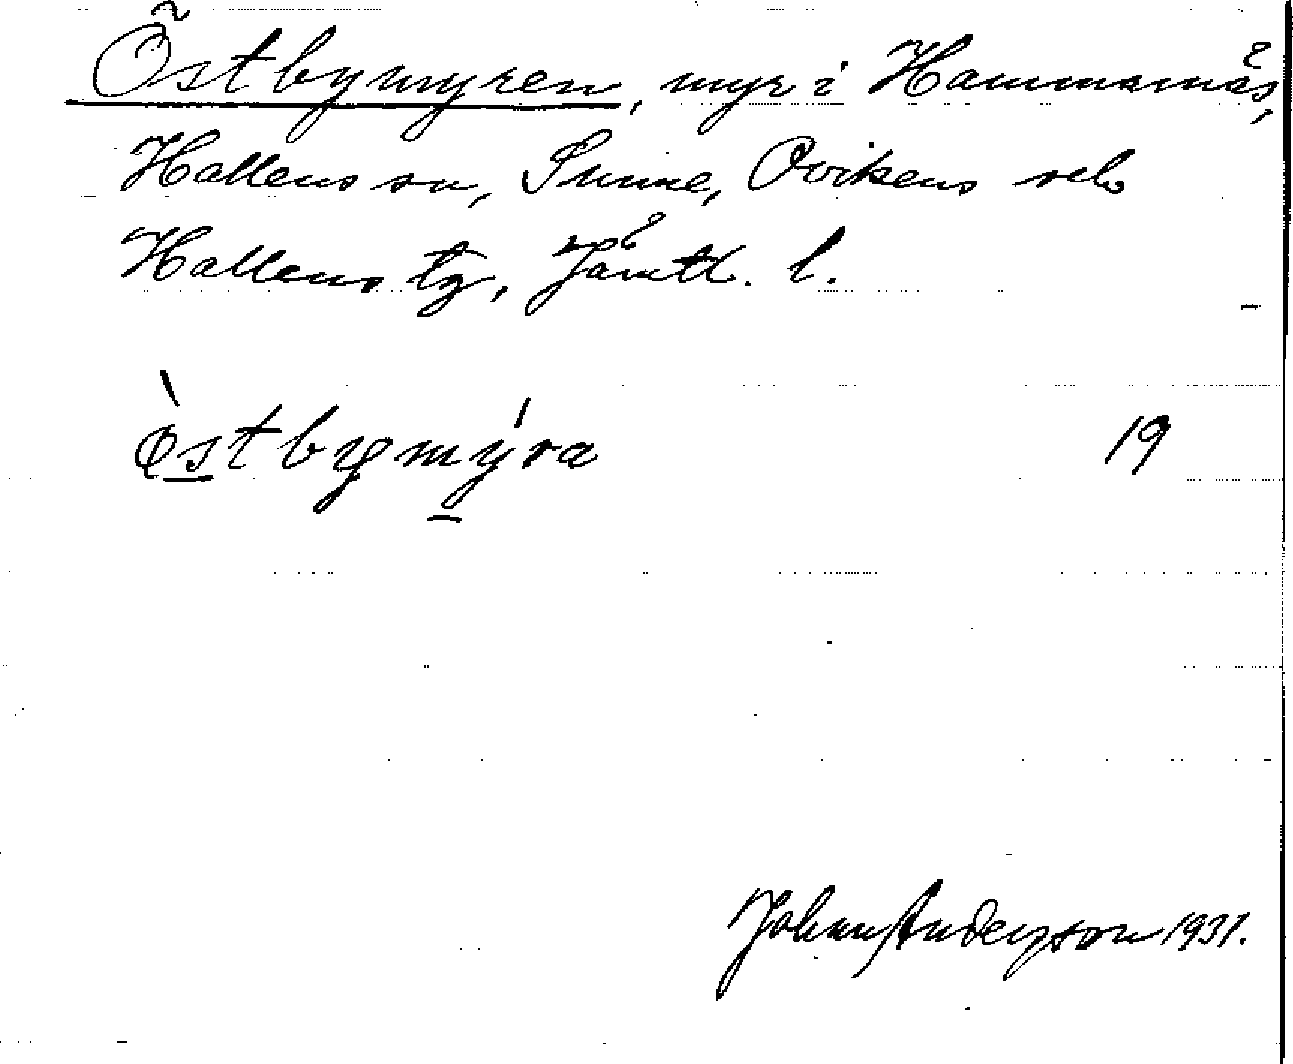 Östbymyren, myr i Hammarnäs,
Hallens sn, Sunne, Ovikens och
Hallens tg, Jämtl. l.
östbymyra 19
Johan Anderson 1931.